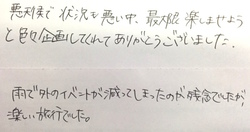 悪天候で状況も悪い中、最大限楽しませよう
と色々企画してくれてありがとうございました。
雨で外のイベントが減ってしまったのが残念でしたが
楽しい旅行でした。